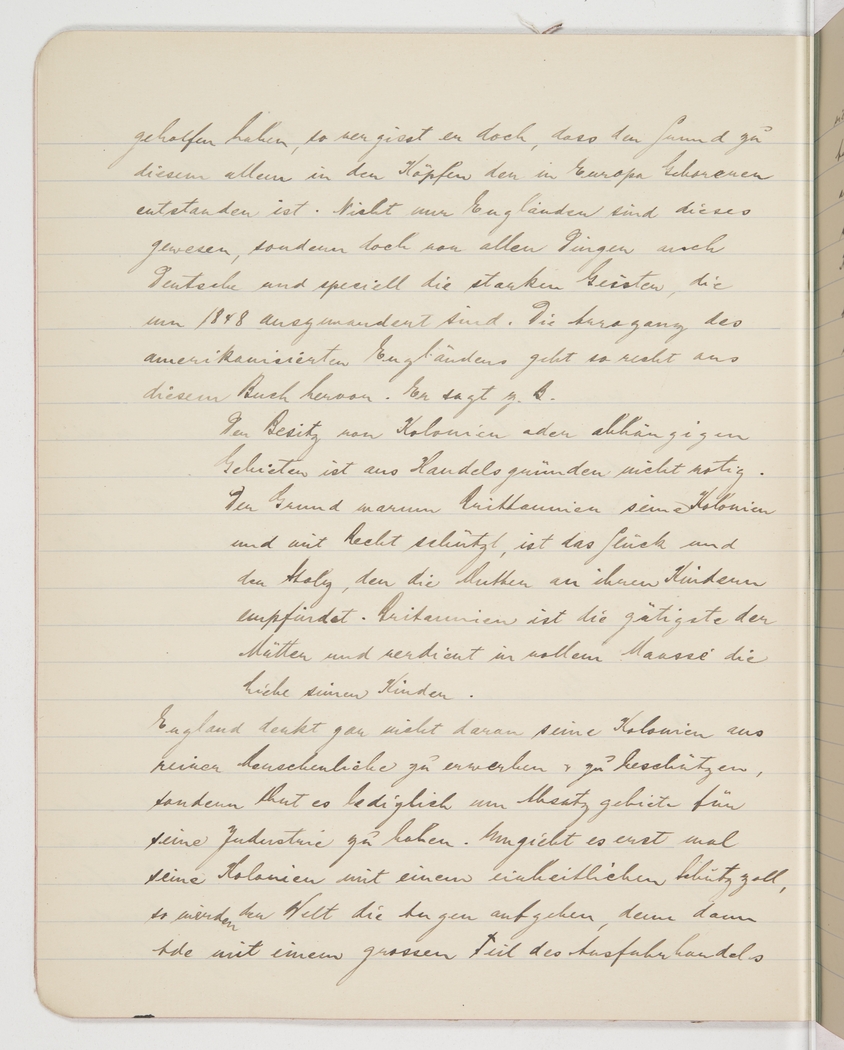 geholfen haben, so vergisst er doch, dass der Grund zu
diesem allein in den Köpfen der in Europa Geborenen
entstanden ist. Nicht nur Engländer sind dieses
gewesen, sondern doch vor allen Dingen auch
Deutsche und speciell die starken Geister, die
um 1848 ausgewandert sind. Die Arroganz des
amerikanisierten Engländers geht so recht aus
diesem Buch hervor. Er sagt z. B.
Der Besitz von Kolonien oder abhängigen
Gebieten ist aus Handelsgründen nicht nötig.
Der Grund warum Brittannien seine Kolonien
und mit Recht schützt, ist das Glück und
der Stolz, den die Mutter an ihren Kindern
empfindet. Britannien ist die gütigste der
Mütter und verdient in vollem Maasse die
Liebe seiner Kinder.
England denkt gar nicht daran seine Kolonien aus
reiner Menschenliebe zu erwerben & zu beschützen,
sondern thut es lediglich um Absatzgebiete für
seine Industrie zu haben. Umgiebt es erst mal
seine Kolonien mit einem einheitlichen Schutzzoll,
so werden der Welt die Augen aufgehen, denn dann
ade mit einem grossen Teil des Ausfuhrhandels